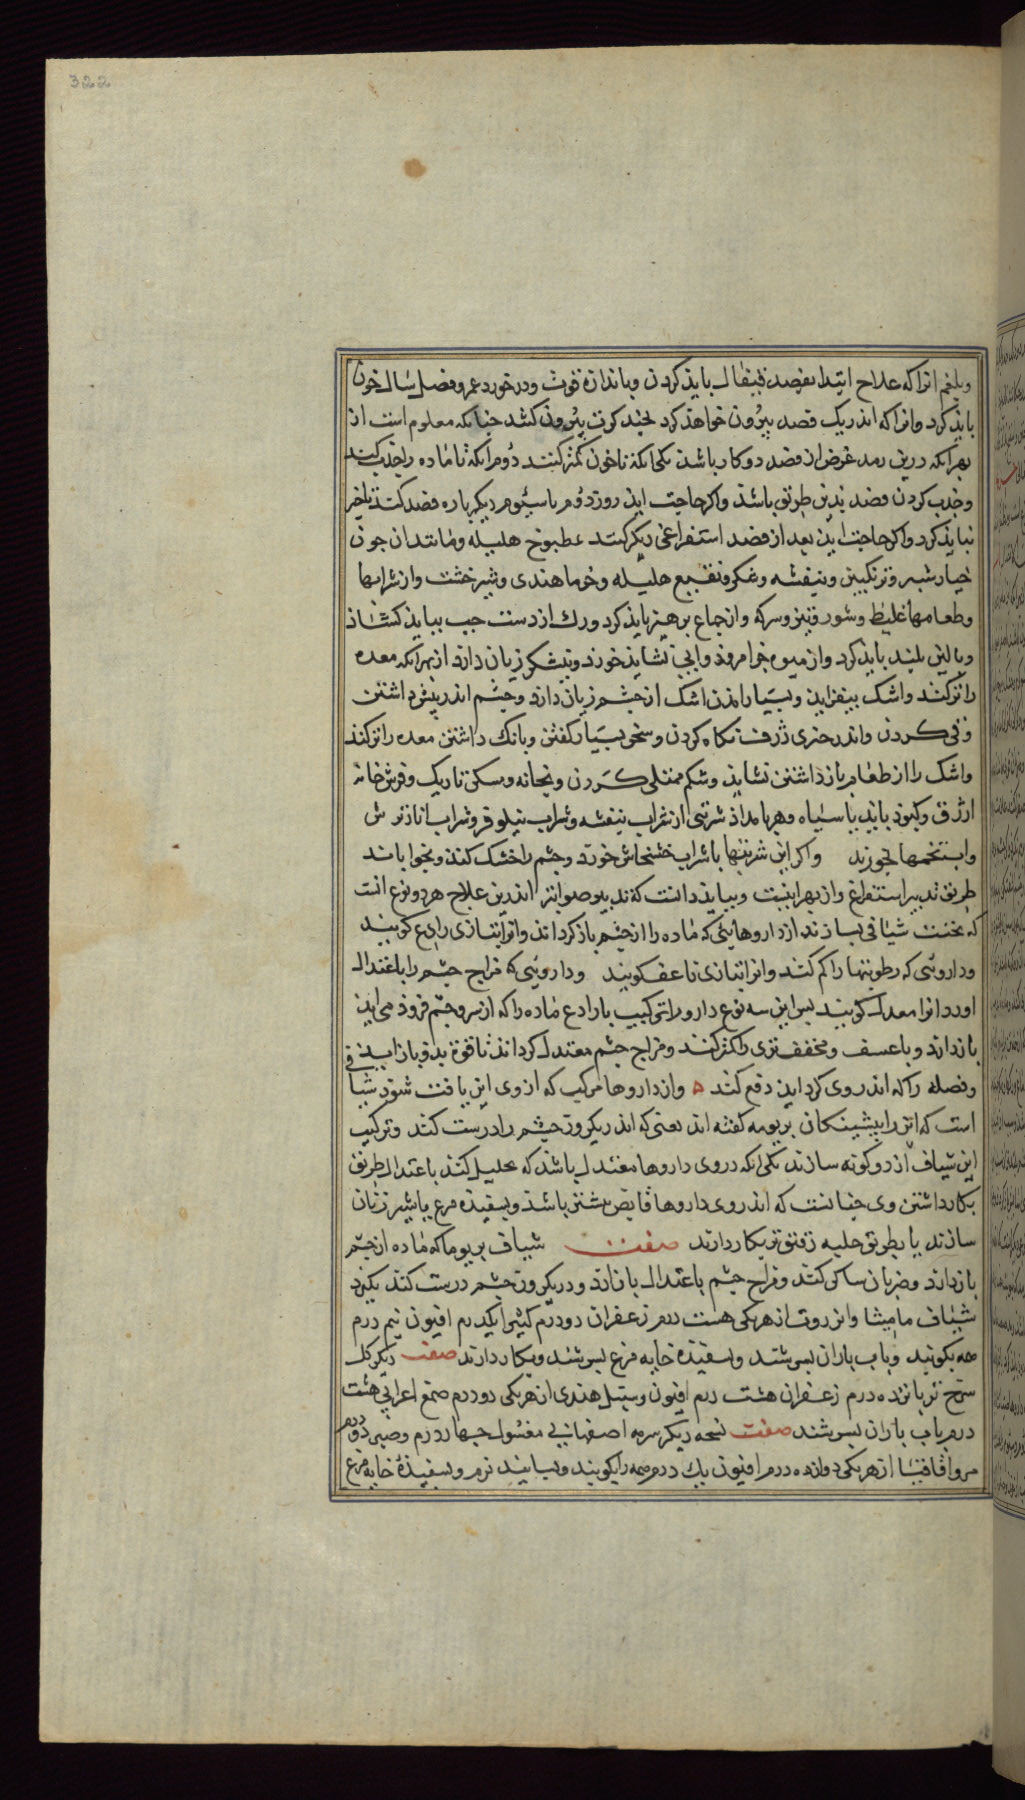 322
وبلغم انرا که علاج ابتدا بفصد قیفال باید کردن وباندازه قوت ودرخورد عمر وفصل سال خون
باید کرد وانرا که اندر یک فصد بیرون خواهد کرد بچند کرت بیرون کشد چنانکه معلوم است از
بهر انکه درین رمد غرض از فصد دو کار باشد یکی انکه تا خون کمتر کنند دوم انکه تا ماده را جذب کنند
وجذب کردن فصد بدین طریق باشد واکر حاجت اید روز دوم یا سیوم دیکر باره فصد کنند تاخیر
نباید کرد واکر حاجت اید بعد از فصد استفراغی دیکر کنند بمطبوخ هلیله ومانند ان چون
خیارشنبر وترنکبین وبنفشه وشکر ونقیع هلیله وخرما هندی وشیرخشت واز شرابها
وطعامها غلیظ وشور وتیز وسرکه واز جماع پرهیز باید کرد ورک از دست چپ بباید کشاد
وبالین بلند باید کرد واز میوه جز امرود وابی نشاید خورد ونیشکر زیان دارد از بهر انکه معده
را تر کند واشک بیفزاید وبسیار راندن اشک از چشم زیان دارد وچشم اندر پیش داشتن
وقی کردن واندر چیزی ژرف نکاه کردن وسخن بسیار کفتن وبانک داشتن معده را تر کند
واشک را از طعام باز داشتن نشاید وشکم ممتلی کردن وبخانه ومسکن تاریک وفرش خانه
ازرق وکبود باید یا سیاه وهر بامداد شربتی از شراب بنفشه وشراب نیلوفر وشراب انار ترش
واب تخمها بخورند واکر این شربتها با شراب خشخاش خورد وچشم را خشک کند وبخواباند
طریق تدبیر استفراغ واز بهر اینست وبباید دانست که تدبیر صوابتر اندرین علاج هر دو نوع انست
که نخست شیافی بسازند از داروهایی که ماده را از چشم باز کرداند وانرا بتازی رادع کویند
وداروئی که رطوبتها را کم کند وانرا بتازی ناعف کویند وداروئیی که مزاج چشم را باعتدال
اورد انرا معدل کویند پس این سه نوع دارو را ترکیب با رادع ماده را که از سر وچشم فرود می اید
بازدارد وبا عسف ومجفف تری را کمتر کند ومزاج چشم معتدل کرداند تا قوة بدو باز اید
وفضله را که اندر وی کرد اید دفع کند ۵ واز داروها مرکب که از وی این یافت شود شیا
است که انرا پیشینکان بریومه کفته اند یعنی که اندر یکروز چشم را درست کند وترکیب
این شیاف از دو کونه سازند یکی انکه در وی داروها معتدل باشد که تحلیل کند باعتدال طریق
بکار داشتن وی چنانست که اندر وی داروها قابض بیشتر باشد وبسفیده مرغ یا بشیر زنان
سازند یا بطریق حلبه رقیق تر بکار دارند صفت شیاف بریوما که ماده از چشم
بازدارد وضربان ساکن کند ومزاج چشم باعتدال باز ارد ودر یکروز چشم درست کند بکیرد
شیاف مامیثا وانزروت از هر یکی هشت درم زعفران دو درم کتیرا یکدرم افیون نیم درم
همه بکوبند وباب باران بسرشند وبسفیده خایه مرغ بسرشند وبکار دارند صفت دیکر کل
سرخ تر پانزده درم زعفران هشت درم افیون وسنبل هندی از هر یکی دو درم صمغ اعرابی هشت
درم باب باران بسرشند صفت نسخه دیکر سرمه اصفهانی مغسول چهار درم وصبر دو درم
مر واقاقیا از هر یکی دوازده درم افیون یک درم همه را بکوبند وبسایند نرم وبسفیذهٔ خایه مرغ